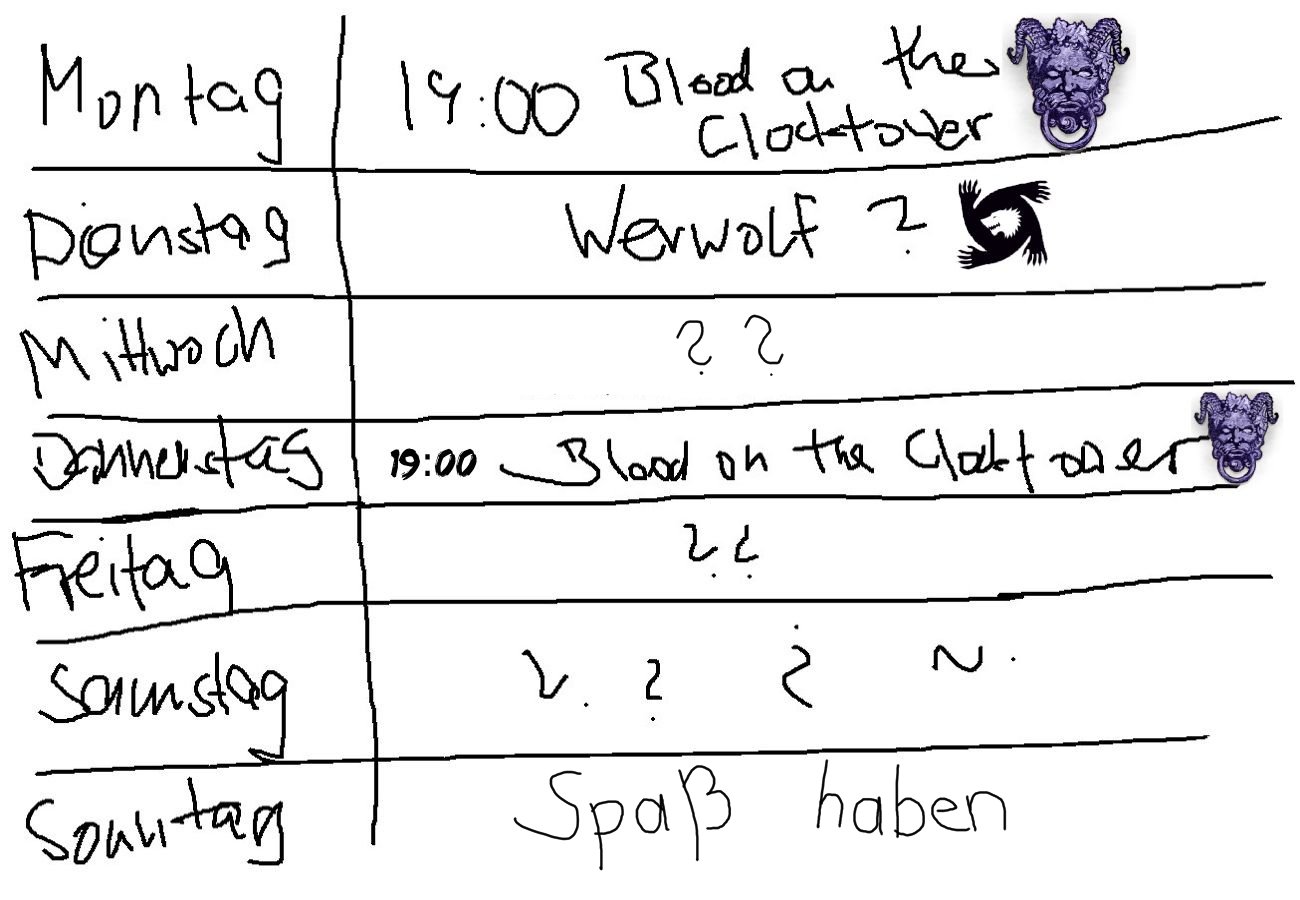 Montag 19:00 Blood on the
Clocktower
Dienstag Werwolf ?
Mittwoch ? ?
Donnerstag 19:00 Blood on the Clocktower
Freitag ? ?
Samstag ? ? ? ?
Sonntag Spaß haben